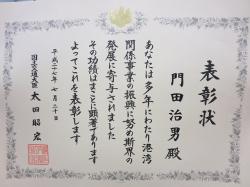 表彰状
門田治男殿
あなたは多年にわたり港湾
関係事業の振興に努め斯界の
発展に寄与されました
その功績はまことに顕著であります
よってこれを表彰します
平成二十七年七月二十日
国土交通大臣 太田昭宏